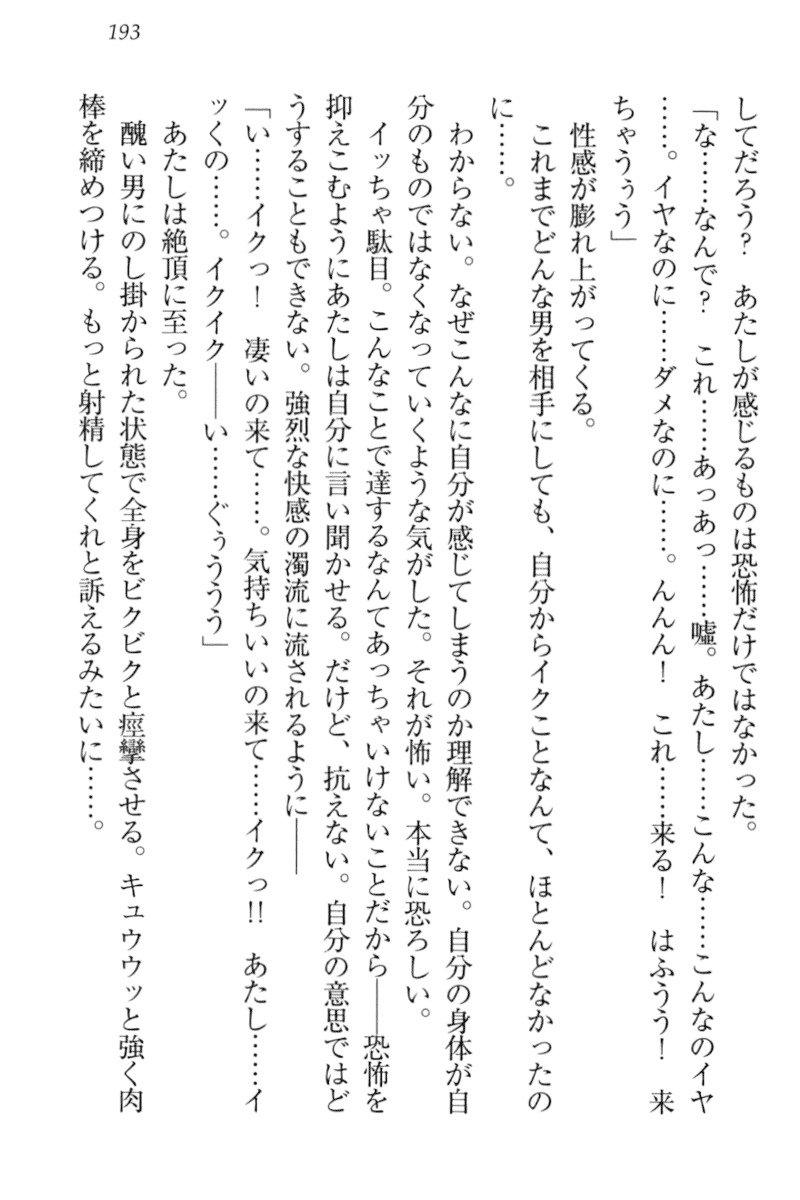 193
してだろう？　あたしが感じるものは恐怖だけではなかった。
「な……なんで？　これ……あっあっ……嘘。あたし……こんな……こんなのイヤ
……。イヤなのに……ダメなのに……。んんん！　これ……来る！　はふうう！　来
ちゃうぅう」
　性感が膨れ上がってくる。
　これまでどんな男を相手にしても、自分からイクことなんて、ほとんどなかったの
に……。
　わからない。なぜこんなに自分が感じてしまうのか理解できない。自分の身体が自
分のものではなくなっていくような気がした。それが怖い。本当に恐ろしい。
　イッちゃ駄目。こんなことで達するなんてあっちゃいけないことだから――恐怖を
抑えこむようにあたしは自分に言い聞かせる。だけど、抗えない。自分の意思ではど
うすることもできない。強烈な快感の濁流に流されるように――
「い……イクっ！　凄いの来て……。気持ちいいの来て……イクっ!!　あたし……イ
ッくの……。イクイク――い……ぐぅううう」
　あたしは絶頂に至った。
　醜い男にのし掛かられた状態で全身をビクビクと痙攣させる。キュウウッと強く肉
棒を締めつける。もっと射精してくれと訴えるみたいに……。